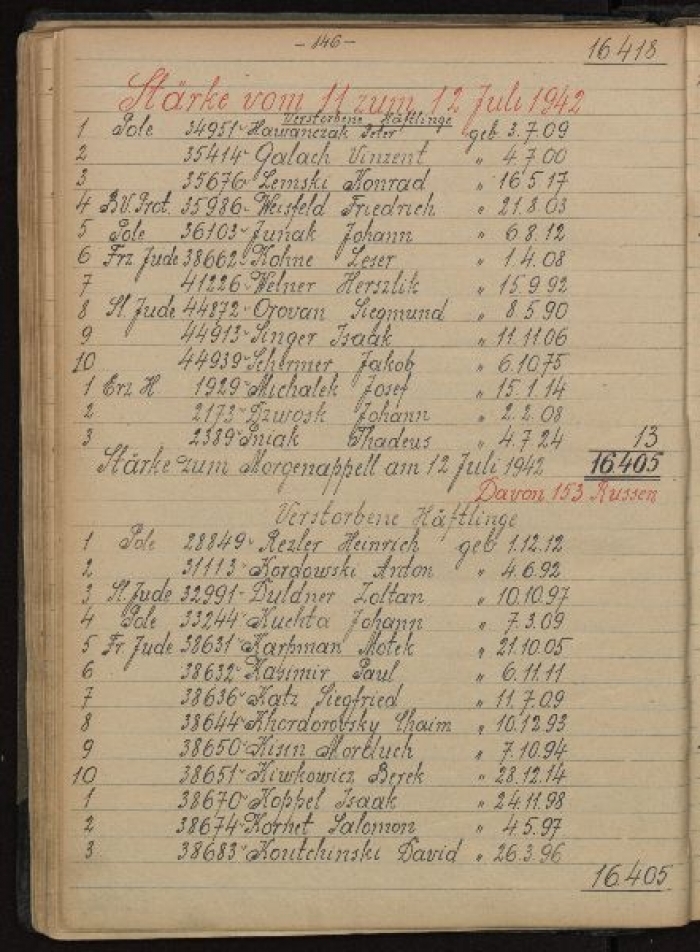 - 146 -
16 418
Stärke vom 11 zum 12 Juli 1942
Verstorbene Häftlinge
1 Pole 34951 Hawanczak Peter geb 3.7.09
2 35414 Galach Vinzent " 4.7.00
3 35676 Lemski Konrad " 16.5.17
4 B.V. Prot. 35986 Weisfeld Friedrich " 21.8.03
5 Pole 36103 Junak Johann " 6.8.12
6 Frz Jude 38662 Kohne Leser " 1.4.08
7 41226 Welner Herszlik " 15.9.92
8 Sl. Jude 44872 Orovan Siegmund " 8.5.90
9 44913 Singer Isaak " 11.11.06
10 44939 Schermer Jakob " 6.10.75
1 Erz H 1929 Michalek Josef " 15.1.14
2 2173 Dzwosk Johann " 2.2.08
3 2389 Sniak Thadeus " 4.7.24 13
Stärke zum Morgenappell am 12 Juli 1942 16405
Davon 153 Russen
Verstorbene Häftlinge
1 Pole 28849 Rezler Heinrich geb 1.12.12
2 31113 Kordowski Anton " 4.6.92
3 Sl. Jude 32991 Duldner Zoltan " 10.10.97
4 Pole 33244 Kuchta Johann " 7.3.09
5 Fr. Jude 38631 Karpman Motek " 21.10.05
6 38632 Kasimir Paul " 6.11.11
7 38636 Katz Siegfried " 11.7.09
8 38644 Khordorovsky Chaim " 10.12.93
9 38650 Kisin Morduch " 7.10.94
10 38651 Kiwkowicz Berek " 28.12.14
1 38670 Koppel Isaak " 24.11.98
2 38674 Kornet Salomon " 4.5.97
3 38683 Koutchinski David " 26.3.96
16.405